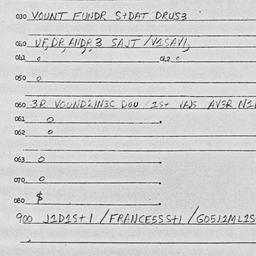 030 VOUNT FUNDR S+DAT DRUS3
040 VF, DR, ANDR, 3 SAJT / V1SAVI,
041 o 042 o
050 o
060 3R VOUND2IN3C DOU / 1S+ VANS AV3R
061 o
062 o
063 o
070 o
080 $
900 J1D1S+1 / FRANCESSS+1 / GO5J1ML1S